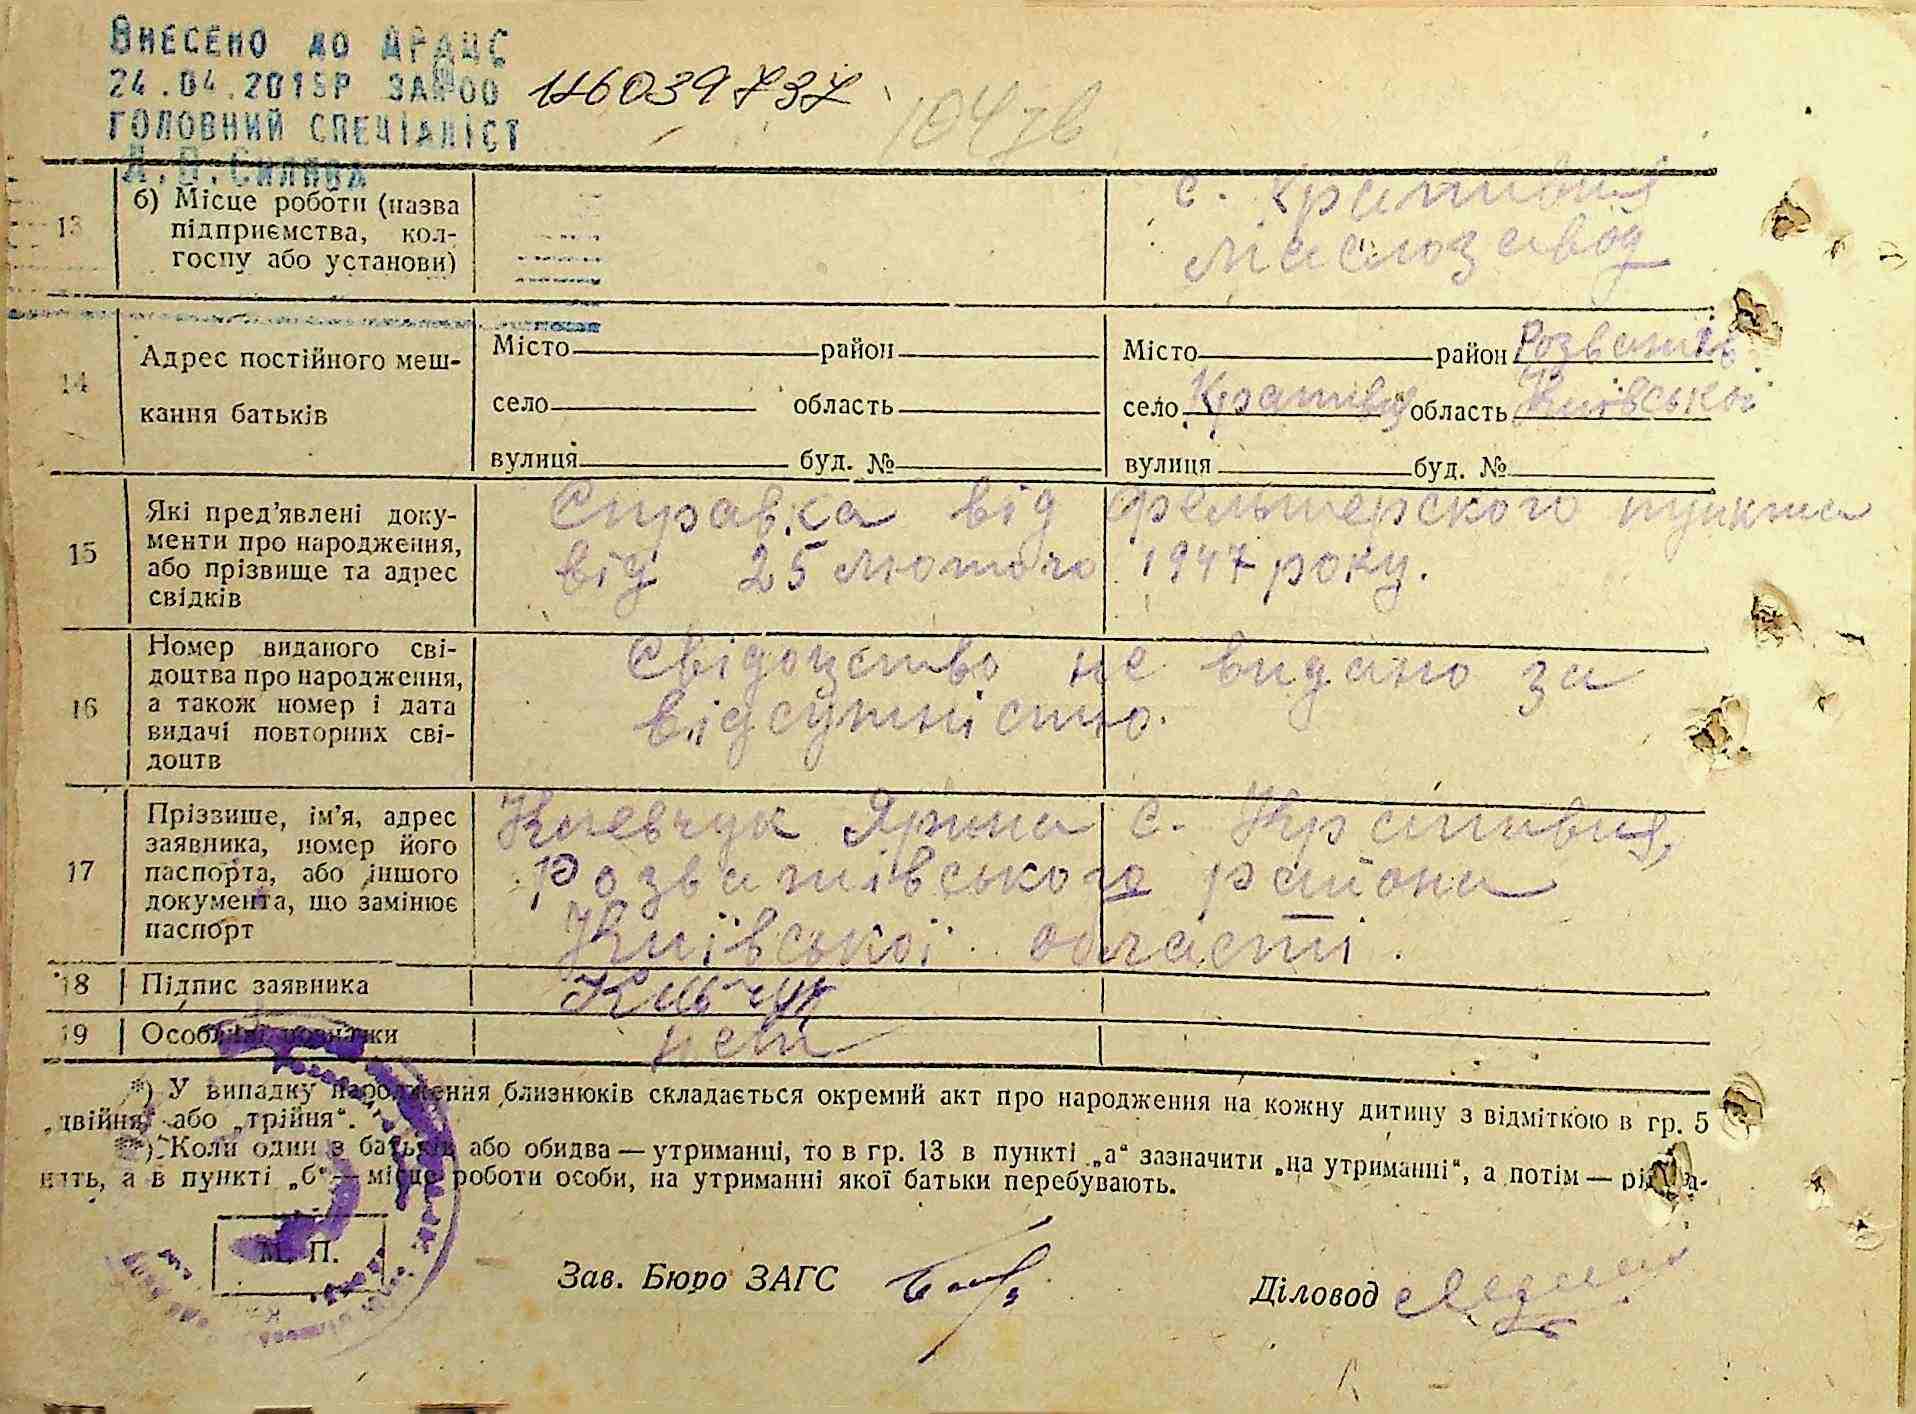 ВНЕСЕНО ДО ДРАЦС
24.04.2015Р ЗА №00 116039737
ГОЛОВНИЙ СПЕЦІАЛІСТ
13 б) Місце роботи (назва підприємства, колгоспу або установи) с. Кративня
маслозавод
14 Адрес постійного меш-
кання батьків
Місто район Місто район Розважів
село область село Кративня область Київської
вулиця буд. № вулиця буд. №
15 Які пред'явлені доку-
менти про народження,
або прізвище та адрес
свідків
Справка від фельшерского пункта
від 25 лютого 1947 року.
16 Номер виданого сві-
доцтва про народження,
а також номер і дата
видачі повторних сві-
доцтв
Свідоцтво не видано за
відсутністю.
17 Прізвище, ім'я, адрес
заявника, номер його
паспорта, або іншого
документа, що замінює
паспорт
Киевчук Ярина с. Кративня,
Розважівського района
Київської області.
18 Підпис заявника
19 Особливі позначки нет
*) У випадку народження близнюків складається окремий акт про народження на кожну дитину з відміткою в гр. 5
„двійня“ або „трійня“.
**) Коли один з батьків або обидва — утриманці, то в гр. 13 в пункті „а“ зазначити „на утриманні“, а потім — рід за-
нять, а в пункті „б“ — місце роботи особи, на утриманні якої батьки перебувають.
М. П.
Зав. Бюро ЗАГС Діловод